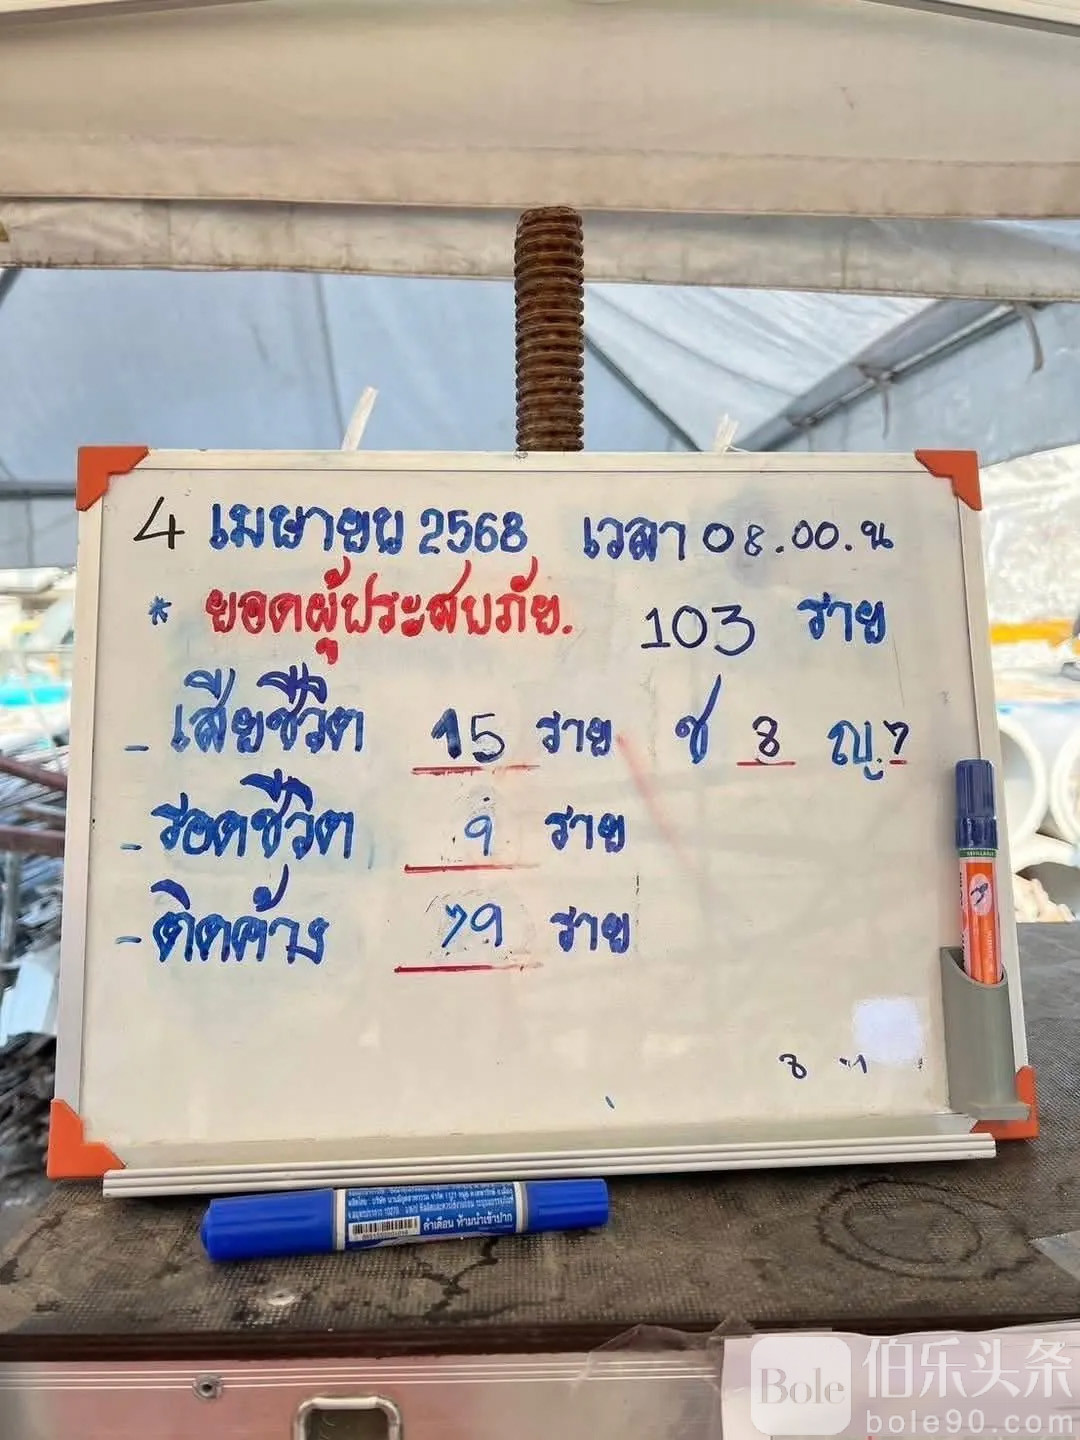 4 เมษายน 2568 เวลา 08.00.น
* ยอดผู้ประสบภัย. 103 ราย
- เสียชีวิต 15 ราย ช 8 ญ. 7
- รอดชีวิต 9 ราย
- ติดค้าง 79 ราย
ล้ำเดือน ห้ามนำเข้าปาก
Bole 伯乐头条
bole90.com